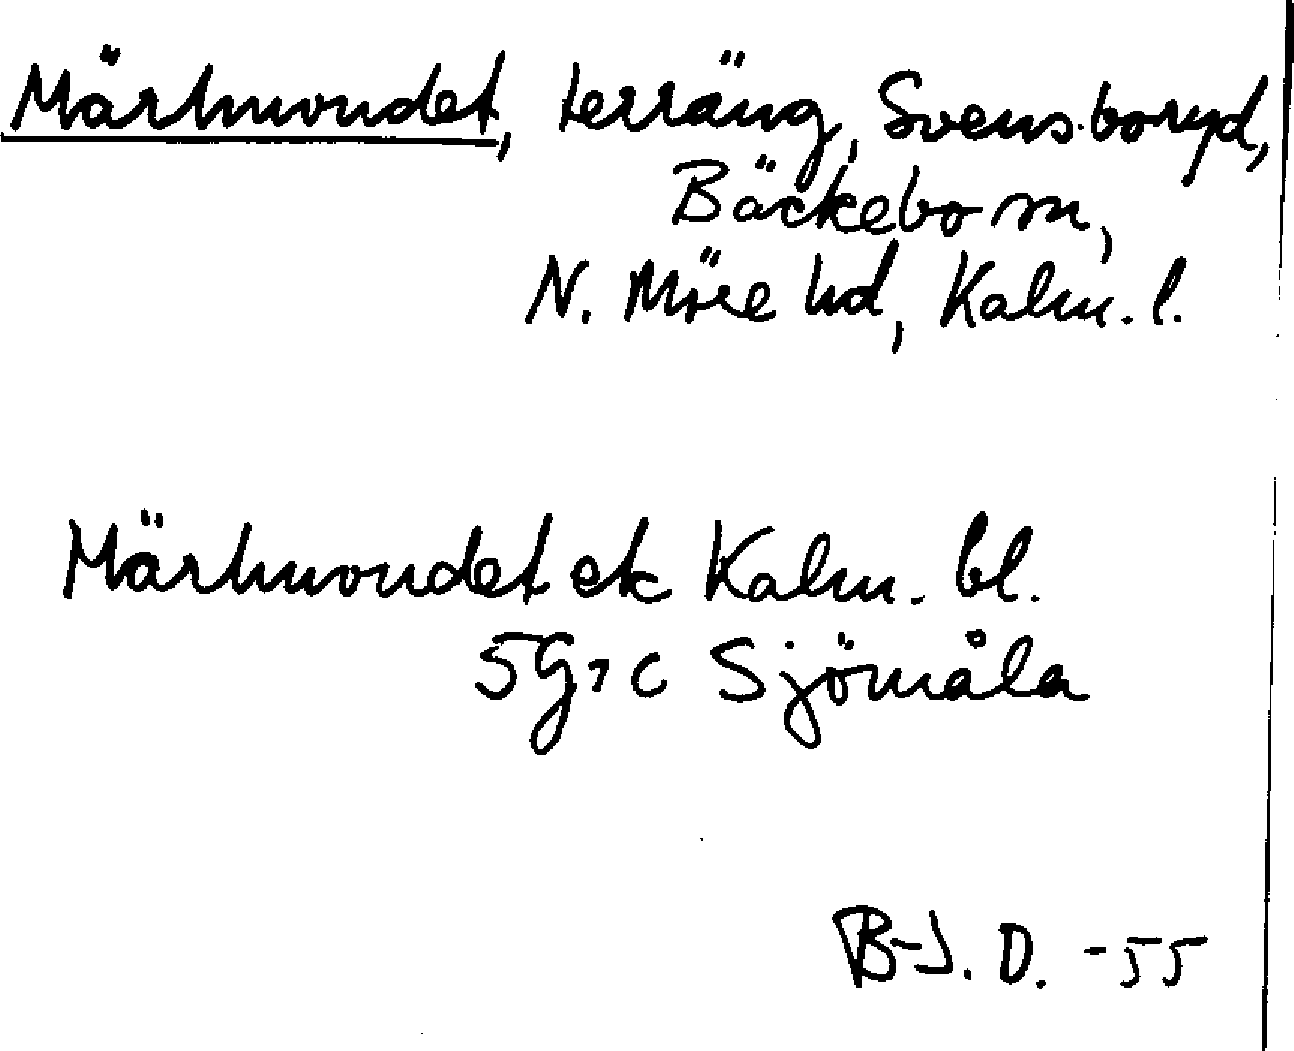 Märhuvudet, terräng, Svensboryd,
Bäckebo sn,
N. Möre hd, Kalm. l.
Märhuvudet ek Kalm. bl.
5G7c Sjömåla
B-J. D. -55